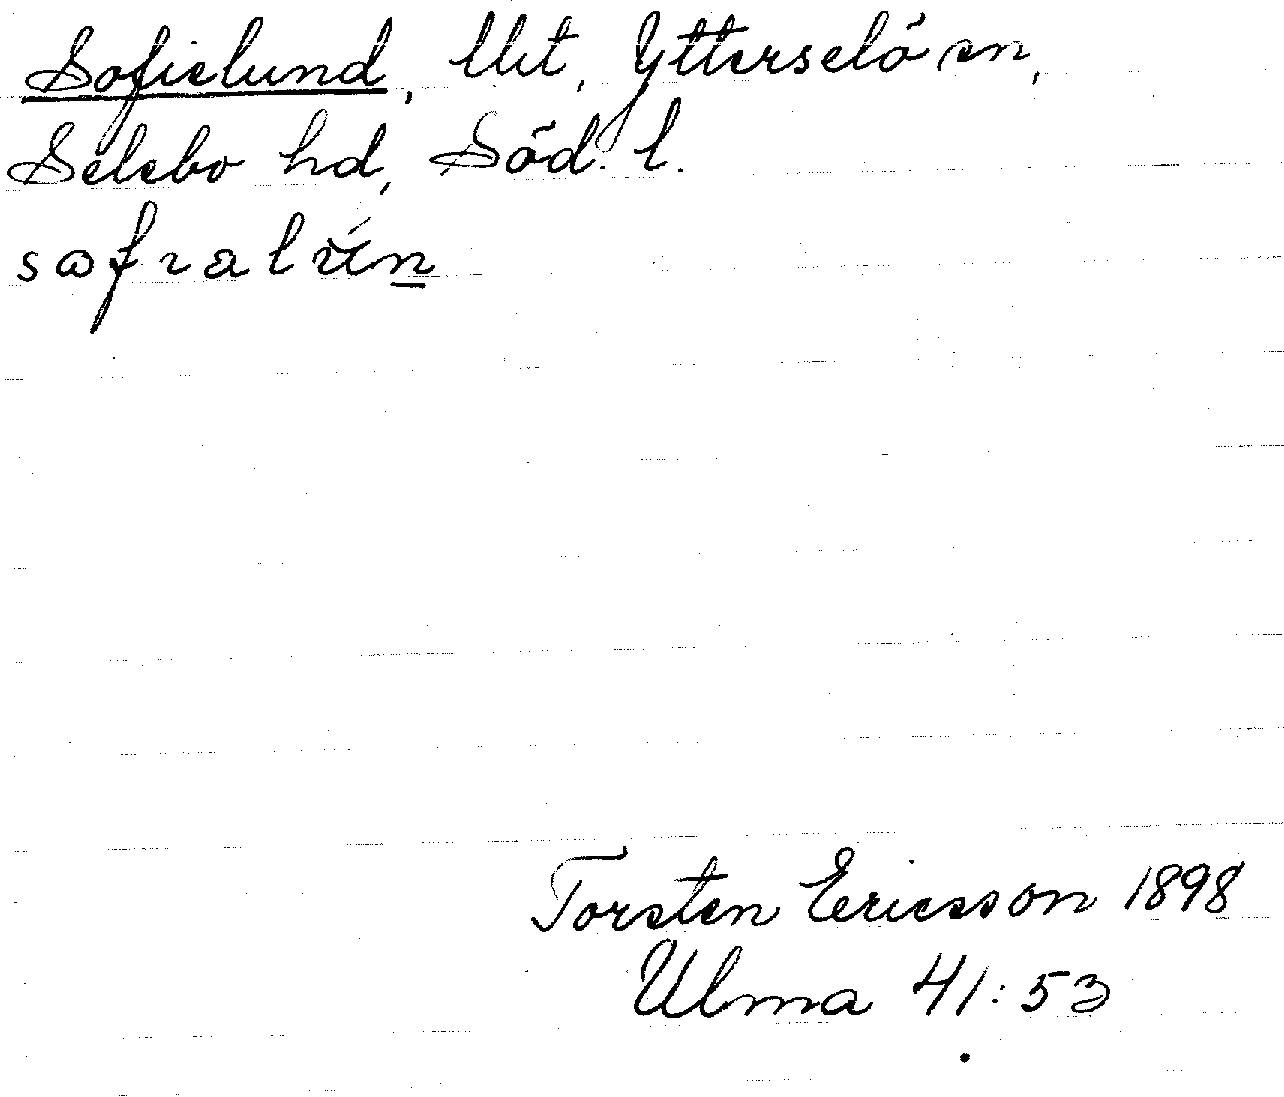 Sofielund, Utt, Ytterselö sn,
Selebo hd, Söd. l.
Torsten Ericsson 1898
Ulma 41:53